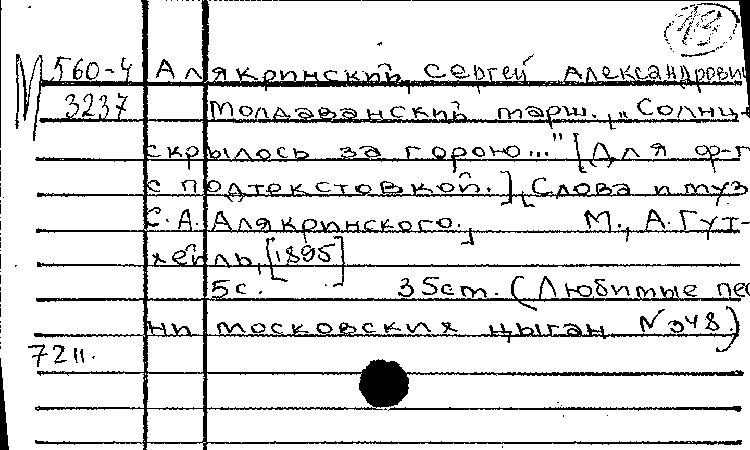 13
М 560-4 Алякринский, Сергей Александрович
3237 Молдаванский марш. „Солнце
скрылось за горою..." [Для ф-п
с подтекстовкой.], [Слова и муз
С.А. Алякринского.], М., А. Гут-
хейль, [1895]
5с. 35см. (Любимые пес
ни московских цыган №348)
72 н.